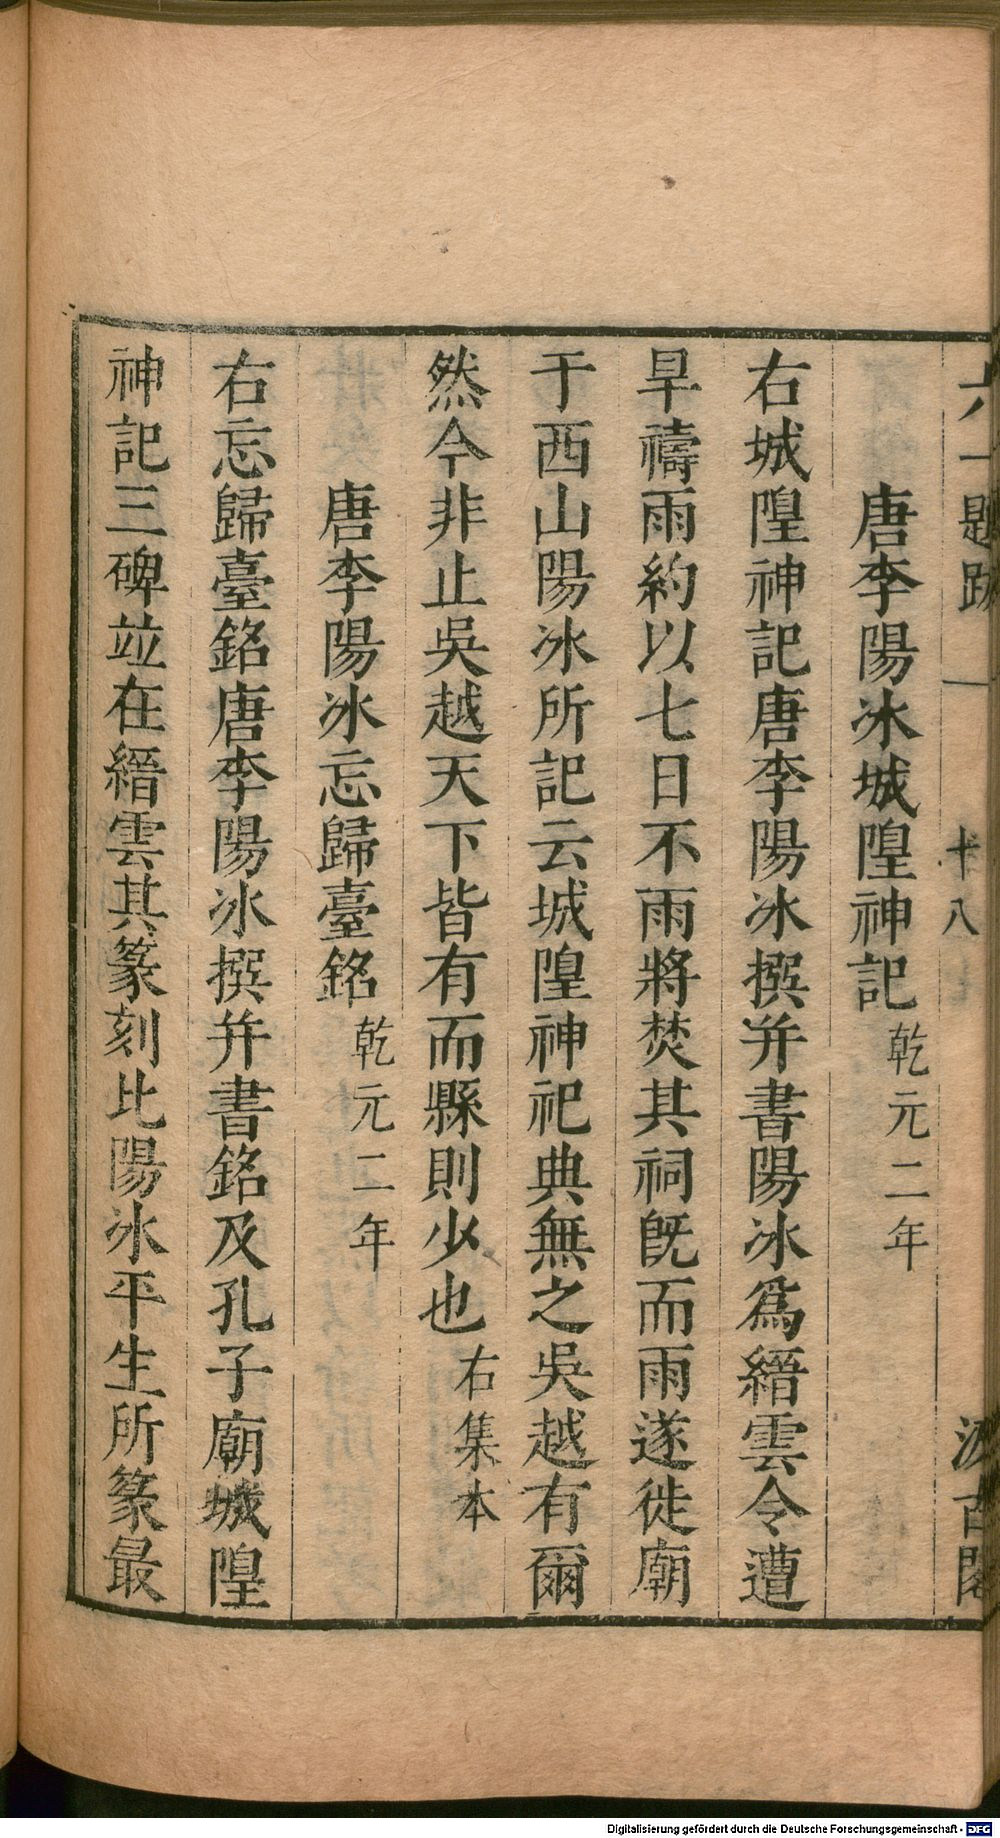 六一題跋 一 十八 汲古閣
唐李陽冰城隍神記乾元二年
右城隍神記唐李陽冰撰并書陽冰爲縉雲令遭
旱禱雨約以七日不雨將焚其祠旣而雨遂徙廟
于西山陽冰所記云城隍神祀典無之吳越有爾
然今非止吳越天下皆有而縣則少也右集本
唐李陽冰忘歸臺銘乾元二年
右忘歸臺銘唐李陽冰撰并書銘及孔子廟城隍
神記三碑竝在縉雲其篆刻比陽冰平生所篆最
Digitalisierung gefördert durch die Deutsche Forschungsgemeinschaft - DFG